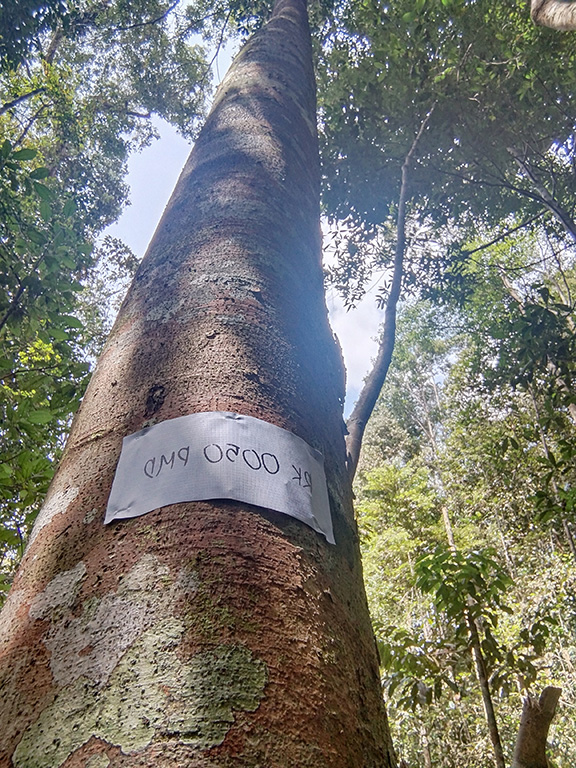 RK 0050 PMD